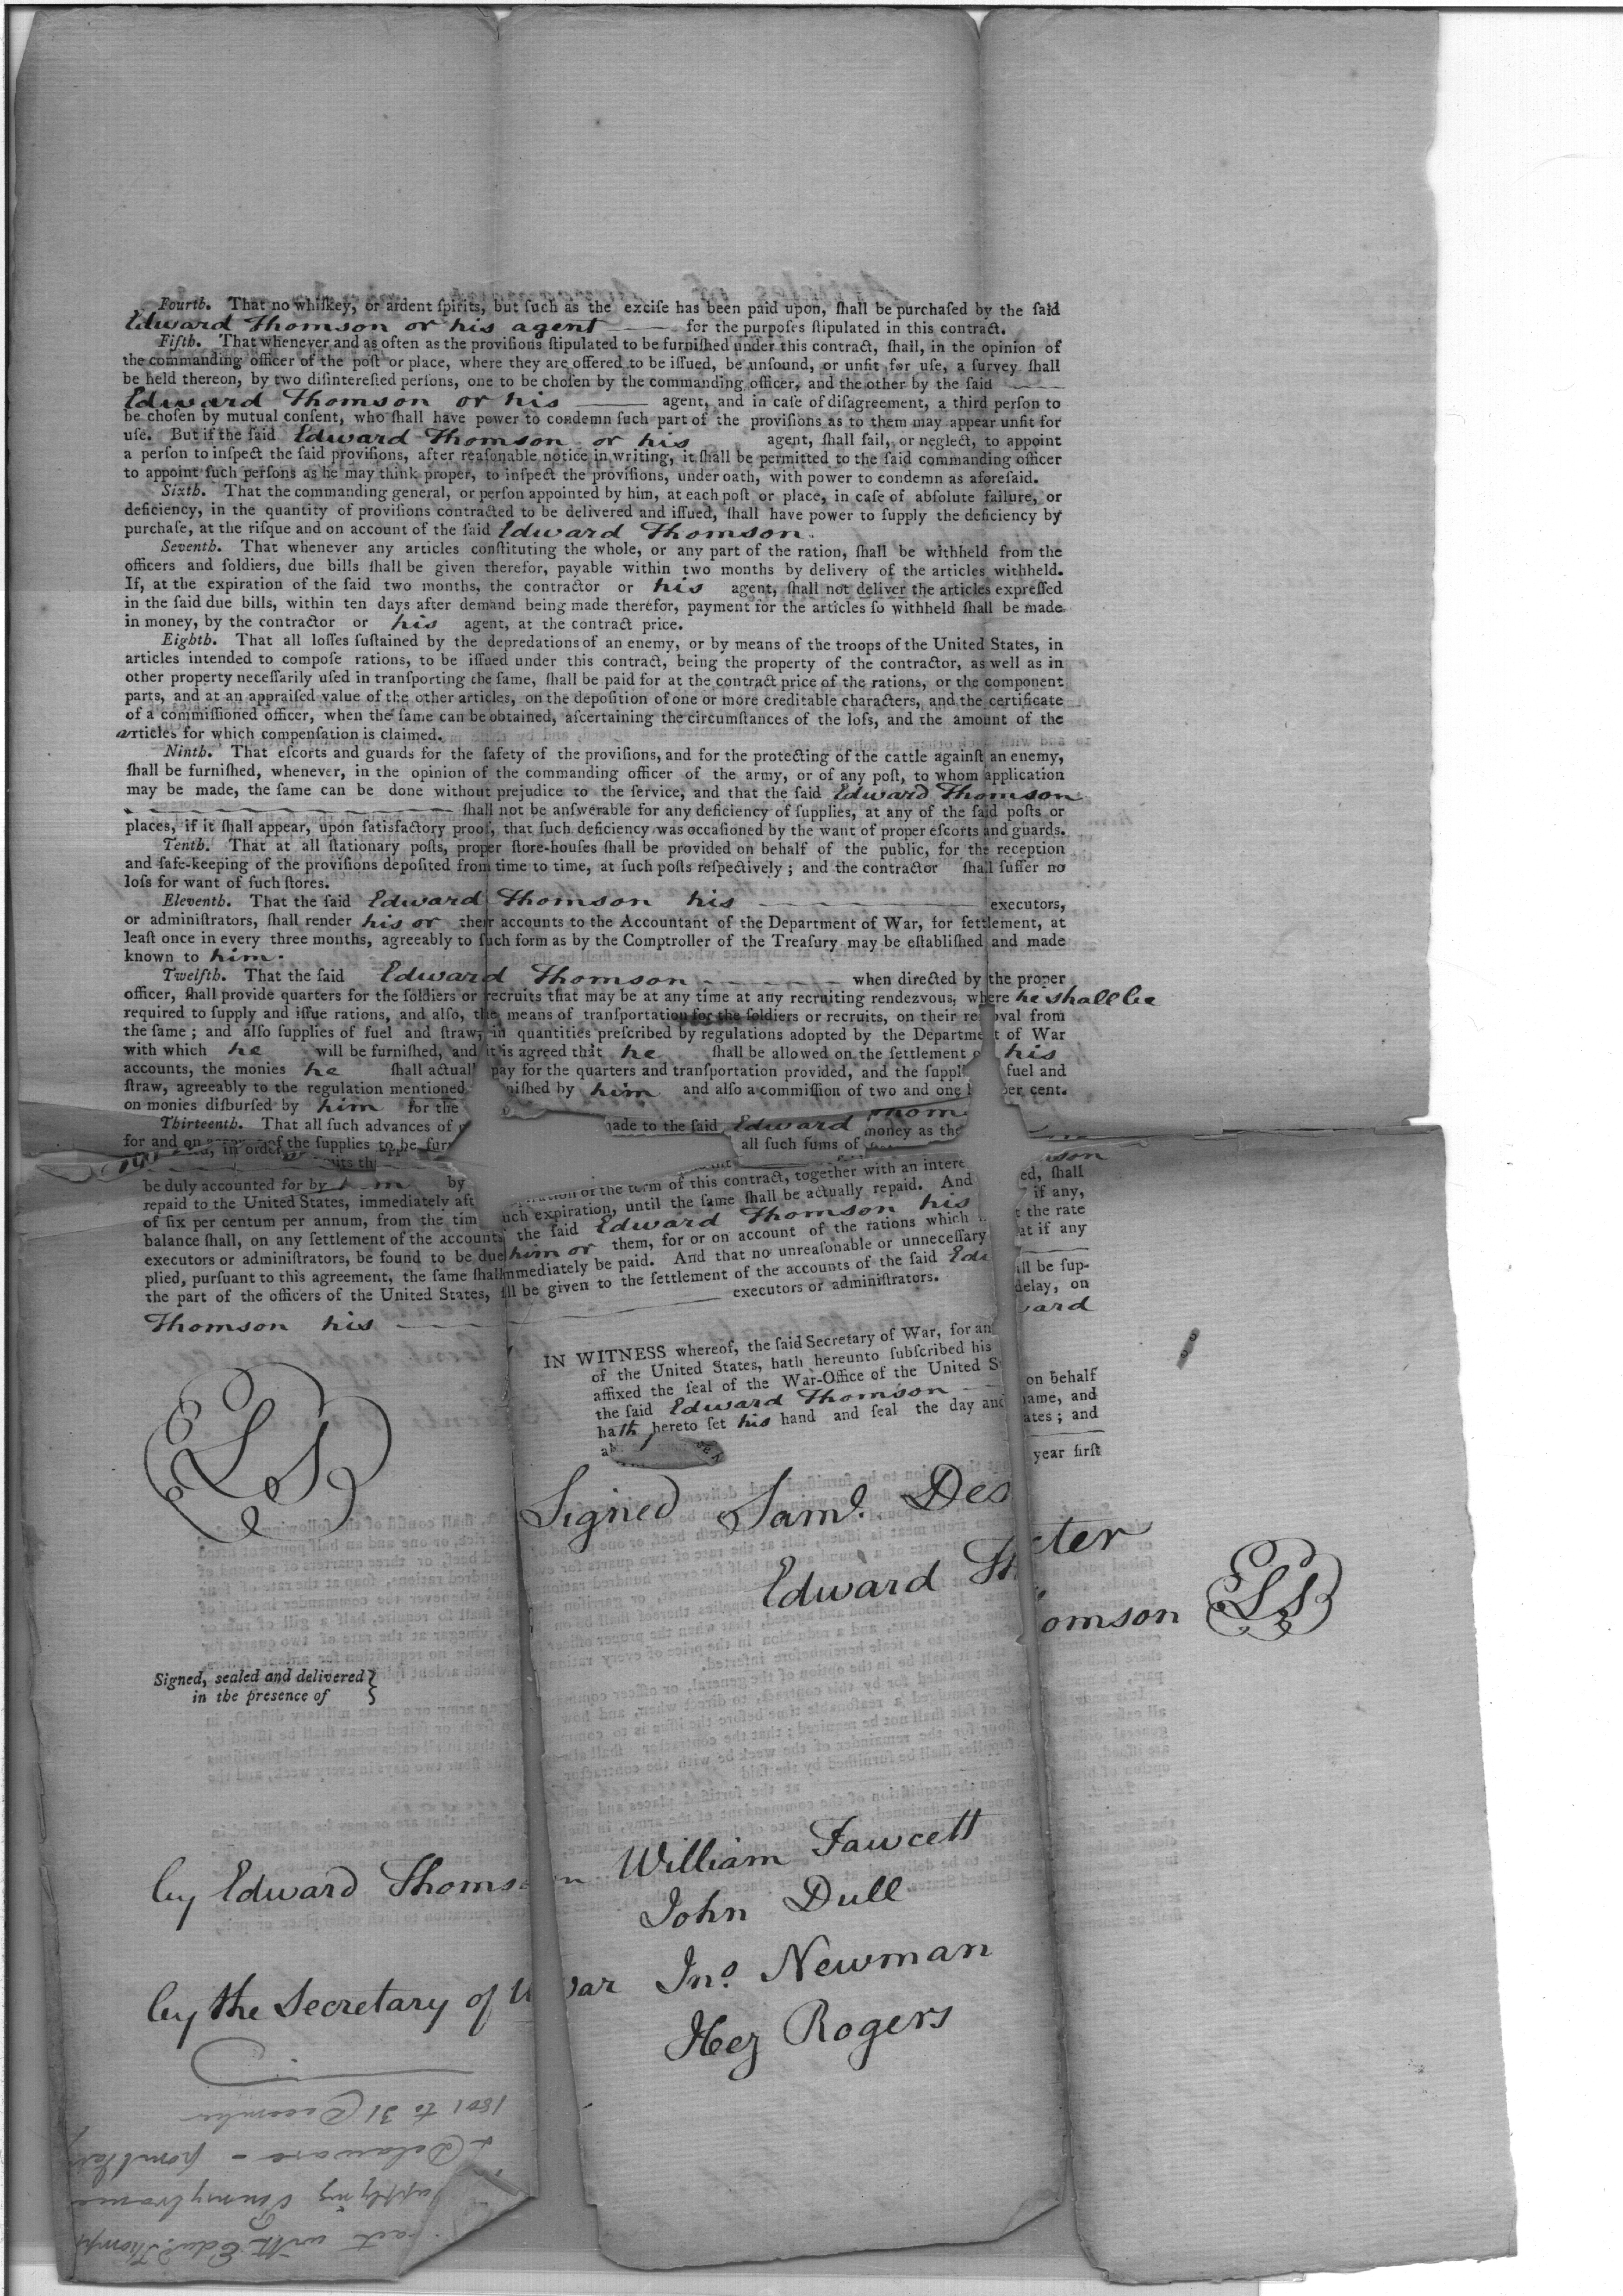 Fourth. That no whiſkey, or ardent ſpirits, but ſuch as the exciſe has been paid upon, ſhall be purchaſed by the ſaid
Edward Thomson or his agent —— for the purpoſes ſtipulated in this contract.
Fifth. That whenever and as often as the proviſions ſtipulated to be furniſhed under this contract, ſhall, in the opinion of
the commanding officer of the poſt or place, where they are offered to be iſſued, be unſound, or unfit for uſe, a ſurvey ſhall
be held thereon, by two diſintereſted perſons, one to be choſen by the commanding officer, and the other by the ſaid ——
Edward Thomson or his —— agent, and in caſe of diſagreement, a third perſon to
be choſen by mutual conſent, who ſhall have power to condemn ſuch part of the proviſions as to them may appear unfit for
uſe. But if the ſaid Edward Thomson or his agent, ſhall fail, or neglect, to appoint
a perſon to inſpect the ſaid proviſions, after reaſonable notice in writing, it ſhall be permitted to the ſaid commanding officer
to appoint ſuch perſons as he may think proper, to inſpect the proviſions, under oath, with power to condemn as aforeſaid.
Sixth. That the commanding general, or perſon appointed by him, at each poſt or place, in caſe of abſolute failure, or
deficiency, in the quantity of proviſions contracted to be delivered and iſſued, ſhall have power to ſupply the deficiency by
purchaſe, at the riſque and on account of the ſaid Edward Thomson.
Seventh. That whenever any articles conſtituting the whole, or any part of the ration, ſhall be withheld from the
officers and ſoldiers, due bills ſhall be given therefor, payable within two months by delivery of the articles withheld.
If, at the expiration of the ſaid two months, the contractor or his agent, ſhall not deliver the articles expreſſed
in the ſaid due bills, within ten days after demand being made therefor, payment for the articles ſo withheld ſhall be made
in money, by the contractor or his agent, at the contract price.
Eighth. That all loſſes ſuſtained by the depredations of an enemy, or by means of the troops of the United States, in
articles intended to compoſe rations, to be iſſued under this contract, being the property of the contractor, as well as in
other property neceſſarily uſed in tranſporting the ſame, ſhall be paid for at the contract price of the rations, or the component
parts, and at an appraiſed value of the other articles, on the depoſition of one or more creditable characters, and the certificate
of a commiſſioned officer, when the ſame can be obtained, aſcertaining the circumſtances of the loſs, and the amount of the
articles for which compenſation is claimed.
Ninth. That eſcorts and guards for the ſafety of the proviſions, and for the protecting of the cattle againſt an enemy,
ſhall be furniſhed, whenever, in the opinion of the commanding officer of the army, or of any poſt, to whom application
may be made, the ſame can be done without prejudice to the ſervice, and that the ſaid Edward Thomson
—— ſhall not be anſwerable for any deficiency of ſupplies, at any of the ſaid poſts or
places, if it ſhall appear, upon ſatisfactory proof, that ſuch deficiency was occaſioned by the want of proper eſcorts and guards.
Tenth. That at all ſtationary poſts, proper ſtore-houſes ſhall be provided on behalf of the public, for the reception
and ſafe-keeping of the proviſions depoſited from time to time, at ſuch poſts reſpectively; and the contractor ſhall ſuffer no
loſs for want of ſuch ſtores.
Eleventh. That the ſaid Edward Thomson his —— executors,
or adminiſtrators, ſhall render his or their accounts to the Accountant of the Department of War, for ſettlement, at
leaſt once in every three months, agreeably to ſuch form as by the Comptroller of the Treaſury may be eſtabliſhed and made
known to him.
Twelfth. That the ſaid Edward Thomson —— when directed by the proper
officer, ſhall provide quarters for the ſoldiers or recruits that may be at any time at any recruiting rendezvous, where he shall be
required to ſupply and iſſue rations, and alſo, the means of tranſportation for the ſoldiers or recruits, on their re oval from
the ſame; and alſo ſupplies of fuel and ſtraw, in quantities preſcribed by regulations adopted by the Departme t of War
with which he will be furniſhed, and it is agreed that he ſhall be allowed on the ſettlement o his
accounts, the monies he ſhall actuall pay for the quarters and tranſportation provided, and the ſuppl fuel and
ſtraw, agreeably to the regulation mentioned niſhed by him and alſo a commiſſion of two and one h per cent.
on monies diſburſed by him for the
Thirteenth. That all ſuch advances of made to the ſaid Edward Thom
for and on of the ſupplies to be fur all ſuch ſums of money as the
be duly accounted for by him by ration of the term of this contract, together with an intere ed, ſhall
repaid to the United States, immediately aft uch expiration, until the ſame ſhall be actually repaid. And if any,
of ſix per centum per annum, from the tim the ſaid Edward Thomson his t the rate
balance ſhall, on any ſettlement of the accounts him or them, for or on account of the rations which at if any
executors or adminiſtrators, be found to be due mmediately be paid. And that no unreaſonable or unneceſſary ill be ſup-
plied, purſuant to this agreement, the ſame ſhall ll be given to the ſettlement of the accounts of the ſaid Edw delay, on
the part of the officers of the United States, —— executors or adminiſtrators. ward
Thomson his ——
IN WITNESS whereof, the ſaid Secretary of War, for an on behalf
of the United States, hath hereunto ſubſcribed his name, and
affixed the ſeal of the War-Office of the United S ates; and
the ſaid Edward Thomson ——
hath hereto ſet his hand and ſeal the day and year firſt
LS
Signed Saml. Dexter
Edward Thomson LS
Signed, sealed and delivered }
in the presence of }
by Edward Thomson William Fawcett
John Dull
by the Secretary of War Jno. Newman
Hez Rogers
1801 to 31 December
& Delaware -
supplying Pennsylvania
act with Edwd. Thomps